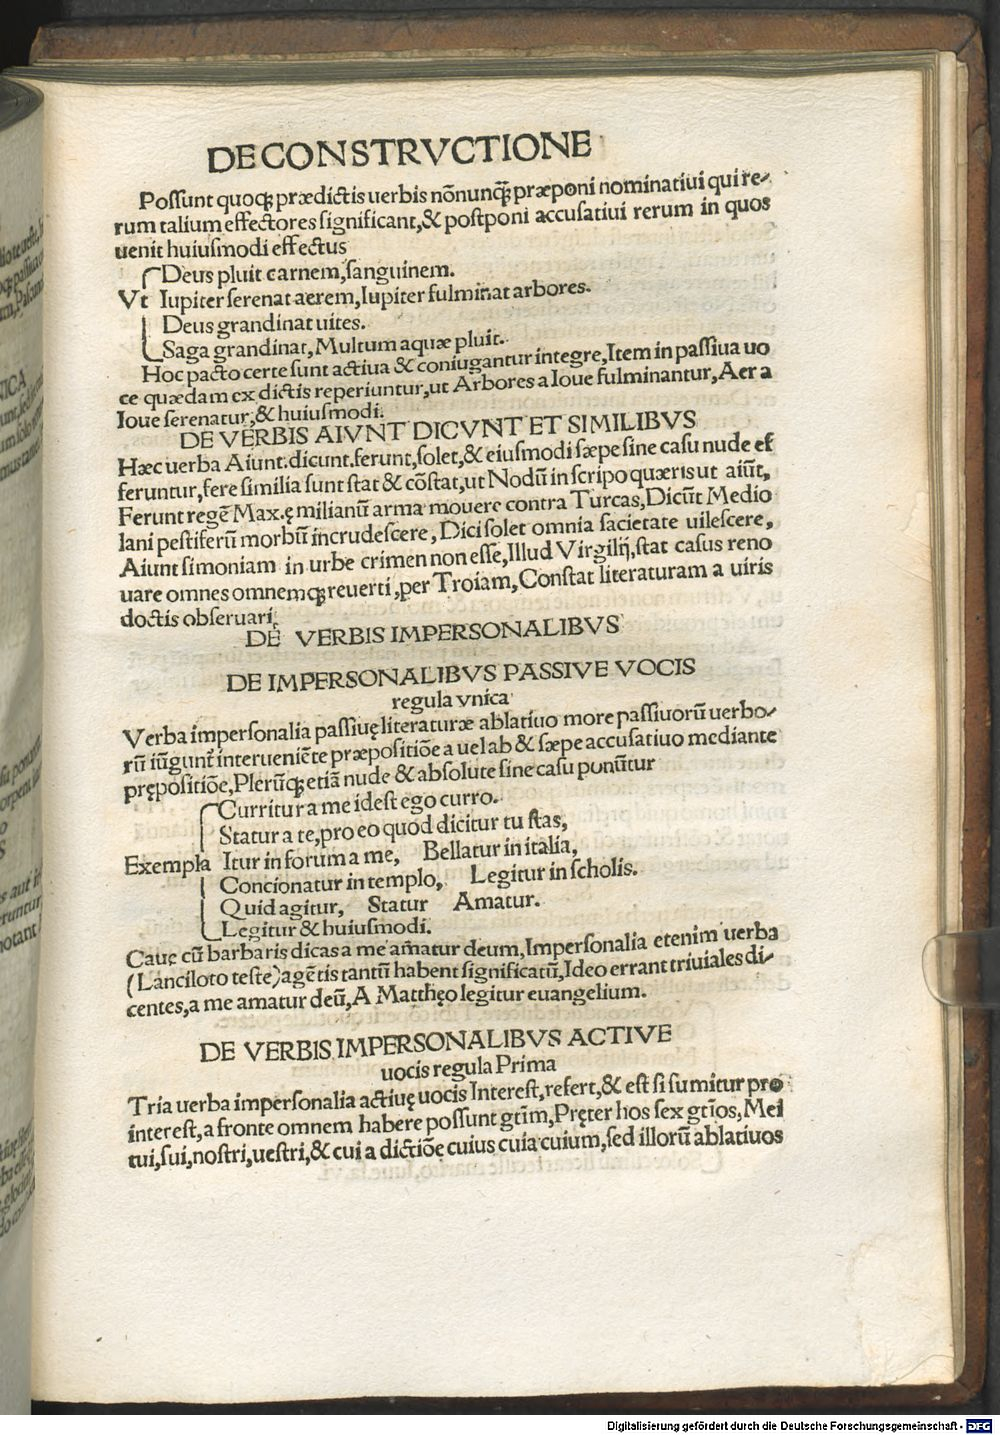 DE CONSTRVCTIONE
Possunt quoqꝫ prædictis uerbis nõnunqꝫ̃ præponi nominatiui qui re-
rum talium effectores significant,& postponi accusatiui rerum in quos
uenit huiusmodi effectus
Deus pluit carnem,sanguinem.
Vt Iupiter serenat aerem,Iupiter fulminat arbores.
Deus grandinat uites.
Saga grandinat, Multum aquæ pluit.
Hoc pacto certe sunt actiua & coniugantur integre,Item in passiua uo
ce quædam ex dictis reperiuntur,ut Arbores a Ioue fulminantur,Aer a
Ioue serenatur,& huiusmodi.
DE VERBIS AIVNT DICVNT ET SIMILIBVS
Hæc uerba Aiunt.dicunt.ferunt,solet,& eiusmodi sæpe sine casu nude ef
feruntur,fere similia sunt stat & cõstat,ut Nodũ in scripo quæris ut aiũt,
Ferunt regẽ Max.ę milianũ arma mouere contra Turcas,Dicũt Medio
lani pestiferũ morbũ incrudescere,Dici solet omnia facietate uilescere,
Aiunt simoniam in urbe crimen non esse,Illud Virgilij,stat casus reno
uare omnes omnemqꝫ reuerti,per Troiam,Constat literaturam a uiris
doctis obseruari.
DE VERBIS IMPERSONALIBVS
DE IMPERSONALIBVS PASSIVE VOCIS
regula vnica
Verba impersonalia passiuę literaturæ ablatiuo more passiuorũ uerbo-
rũ iũgunt̃ interueniẽte præpositiõe a uel ab & sæpe accusatiuo mediante
prępositiõe,Plerũqꝫ etiã nude & absolute sine casu ponũtur
Curritur a me idest ego curro.
Statur a te,pro eo quod dicitur tu stas,
Exempla Itur in forum a me, Bellatur in italia,
Concionatur in templo, Legitur in scholis.
Quid agitur, Statur Amatur.
Legitur & huiusmodi.
Cauę cũ barbaris dicas a me amatur deum,Impersonalia etenim uerba
(Lanciloto teste)agẽtis tantũ habent significatũ,Ideo errant triuiales di-
centes,a me amatur deũ,A Matthęo legitur euangelium.
DE VERBIS IMPERSONALIBVS ACTIVE
uocis regula Prima
Tria uerba impersonalia actiuę uocis Interest,refert,& est si sumitur pro
interest,a fronte omnem habere possunt gtm̃,Pręter hos sex gtĩos,Mei
tui,sui,nostri,uestri,& cui a dictiõe cuius cuia cuium,sed illorũ ablatiuos
Digitalisierung gefördert durch die Deutsche Forschungsgemeinschaft - DFG